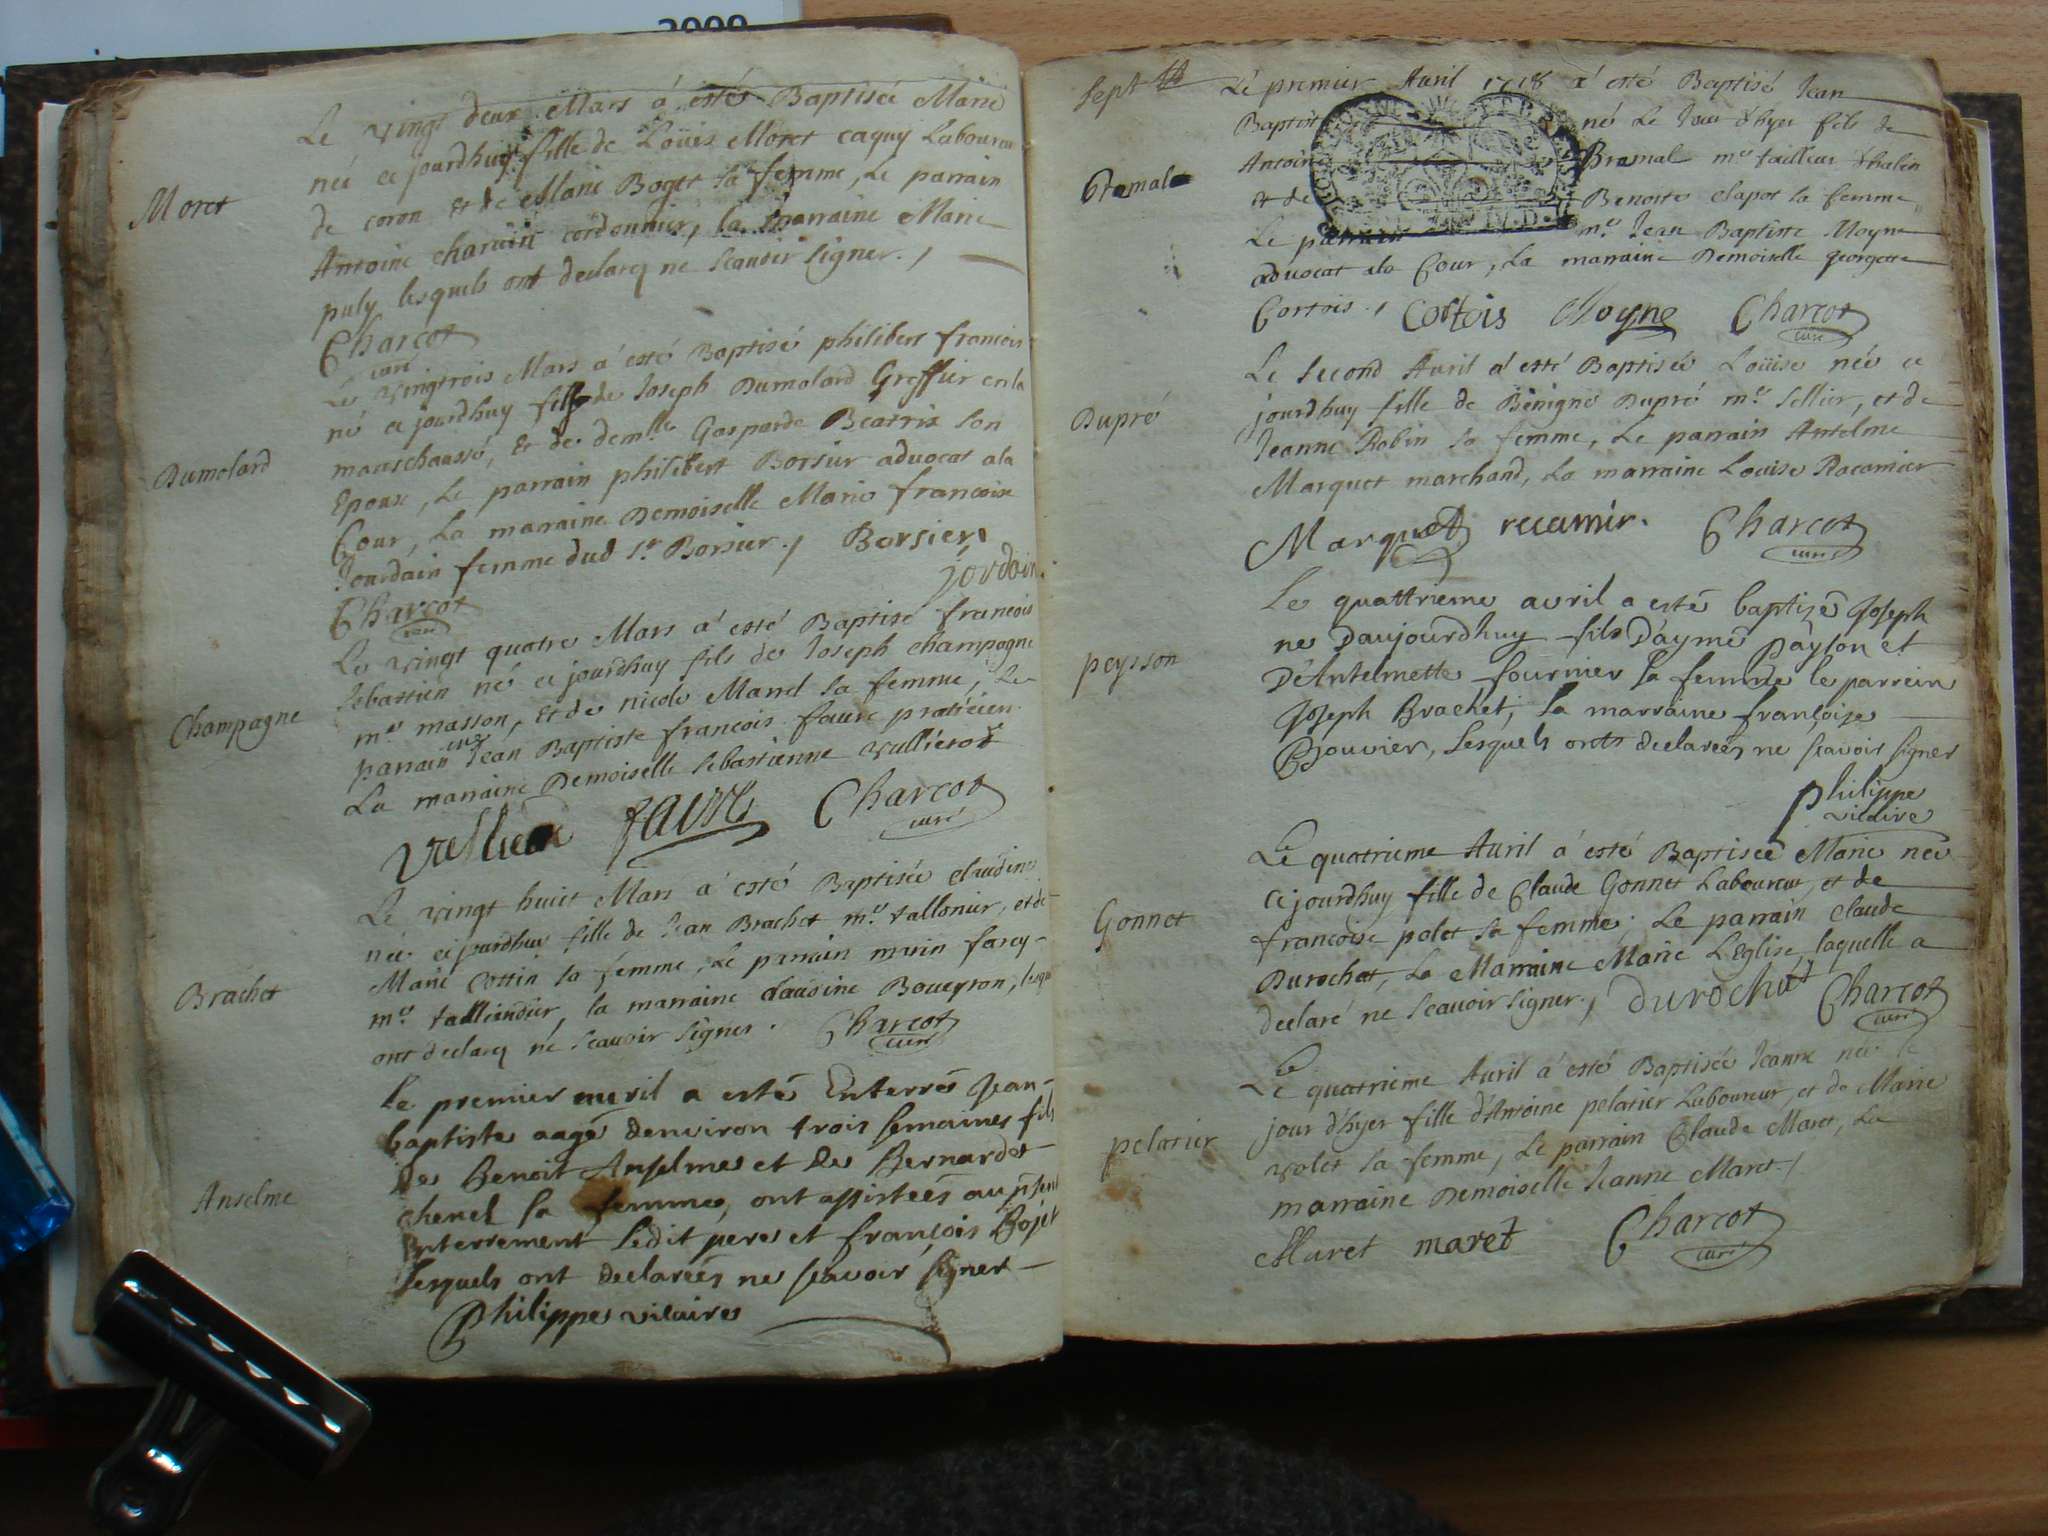 Le vingt deux Mars á esté Baptisée Marie
née ce jourdhuy fille de Loüis Moret caquy Laboureur
Moret
de coron et de Marie Boget sa femme, Le parrain
Antoine charvin cordonnier, la marraine Marie
puly lesquels ont declarez ne Scauoir Signer.
Charcot
curé
Le vingtrois Mars a' esté Baptisé philibert francois
né ce jourdhuy fils de Joseph Dumolard Greffier en la
mareschaussé, Et de demlle Gasparde Béatrix son
Dumolard
Epouse, Le parrain philibert Borsier advocat ala
Cour, La marraine Demoiselle Marie francoise
Jourdain femme dud Sr Borsier. Borsier
jordain
Charcot
curé
Le vingt quatre Mars a' esté Baptisé francois
Sebastien né ce jourdhuy fils de Joseph champagne
Champagne
me masson, Et de nicole Manel sa femme, Le
parrain Jean Baptiste francois faure praticien
La marraine Demoiselle Sebastienne vullierod
faure Charcot
curé
Le vingt huict Mars a' esté Baptisée claudine
née ce jourdhuy fille de Jean Brachet me tallonier, et de
Brachet
Marie Cottin sa femme, Le parrain farcy
me talliandier, la marraine claudine Boueyron,
ont declarez ne Scauoir Signer. Charcot
curé
Le premier auvril a esté Enterrés Jean
baptiste aagé denviron trois Semaines fils
De Benoit Anselme et De Bernardet
Anselme
chenel sa femme, ont assistées au psent
Enterrement Ledit pere et françois Bojet
Lesquels ont declarées ne scavoir signer
Philippe vicaire
Sept
Le premier Auril 1718 a' esté Baptisé Jean
Baptiste né Le Jour d'hyer fils de
Bramal
Antoine Bramal me tailleur d'habin
et de Benoite Clapot sa femme,
Le parrain me Jean Baptiste Moyne
advocat ala Cour, La marraine Demoiselle georgette
Cortois. Cortois Moyne Charcot
curé
Le second Auril a' esté Baptisée Loüise née ce
jourdhuy fille de Bénigne Dupré me Sellier, et de
Dupré
Jeanne Robin sa femme, Le parrain Antelme
Marquet marchand, La marraine Louise Racamier
Marquet recamir. Charcot
curé
Le quattrieme avril a esté baptizé Joseph
ne D'aujourdhuy fils D'aymé Payson et
peysson
D'Antelmette fournier sa femme le parrein
Joseph Brachet, la marraine françoise
Bouvier, Lesquels onts declareés ne scavoir signer
Philippe
vicaire
Le quatrieme Auril á esté Baptiseé Marie née
ce jourdhuy fille de Claude Gonnet Laboureur, et de
Gonnet
francoise polet sa femme, Le parrain Claude
Durochat, La Marraine Marie L'Eglise, laquelle a
declaré ne Scauoir Signer, durochat Charcot
curé
Le quatrieme Auril á esté Baptisée Jeanne née le
jour d'hyer fille d'Antoine pelatier Laboureur, et de Marie
pelatier
volet sa femme, Le parrain Claude Maret, La
marraine Demoiselle Jeanne Maret.
Maret maret Charcot
curé